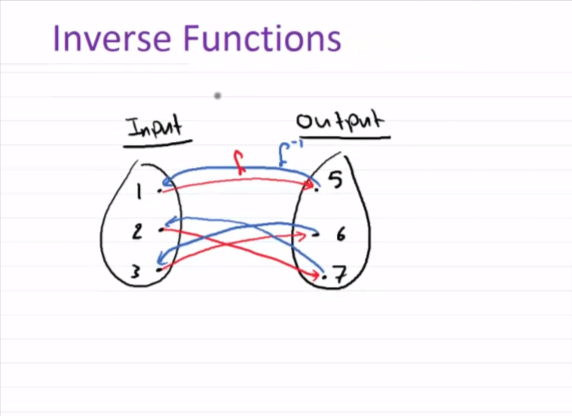 Inverse Functions
Input
Output
f
f⁻¹
1
5
2
6
3
7